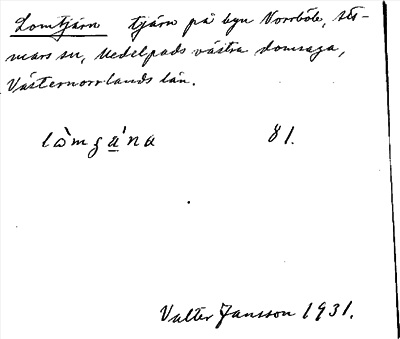 Lomtjärn tjärn på byn Norrböle, Att-
mars sn, Medelpads västra domsaga,
Västernorrlands län.
lòmga̲̍na 81.
Valter Jansson 1931.